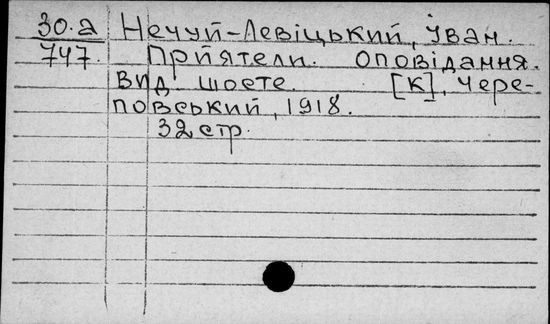 30.а Нечуй-Левіцький, Іван.
747. Прийятели. оповідання.
Вид. шосте. [К], Чере-
повський, 1918.
32 стр.